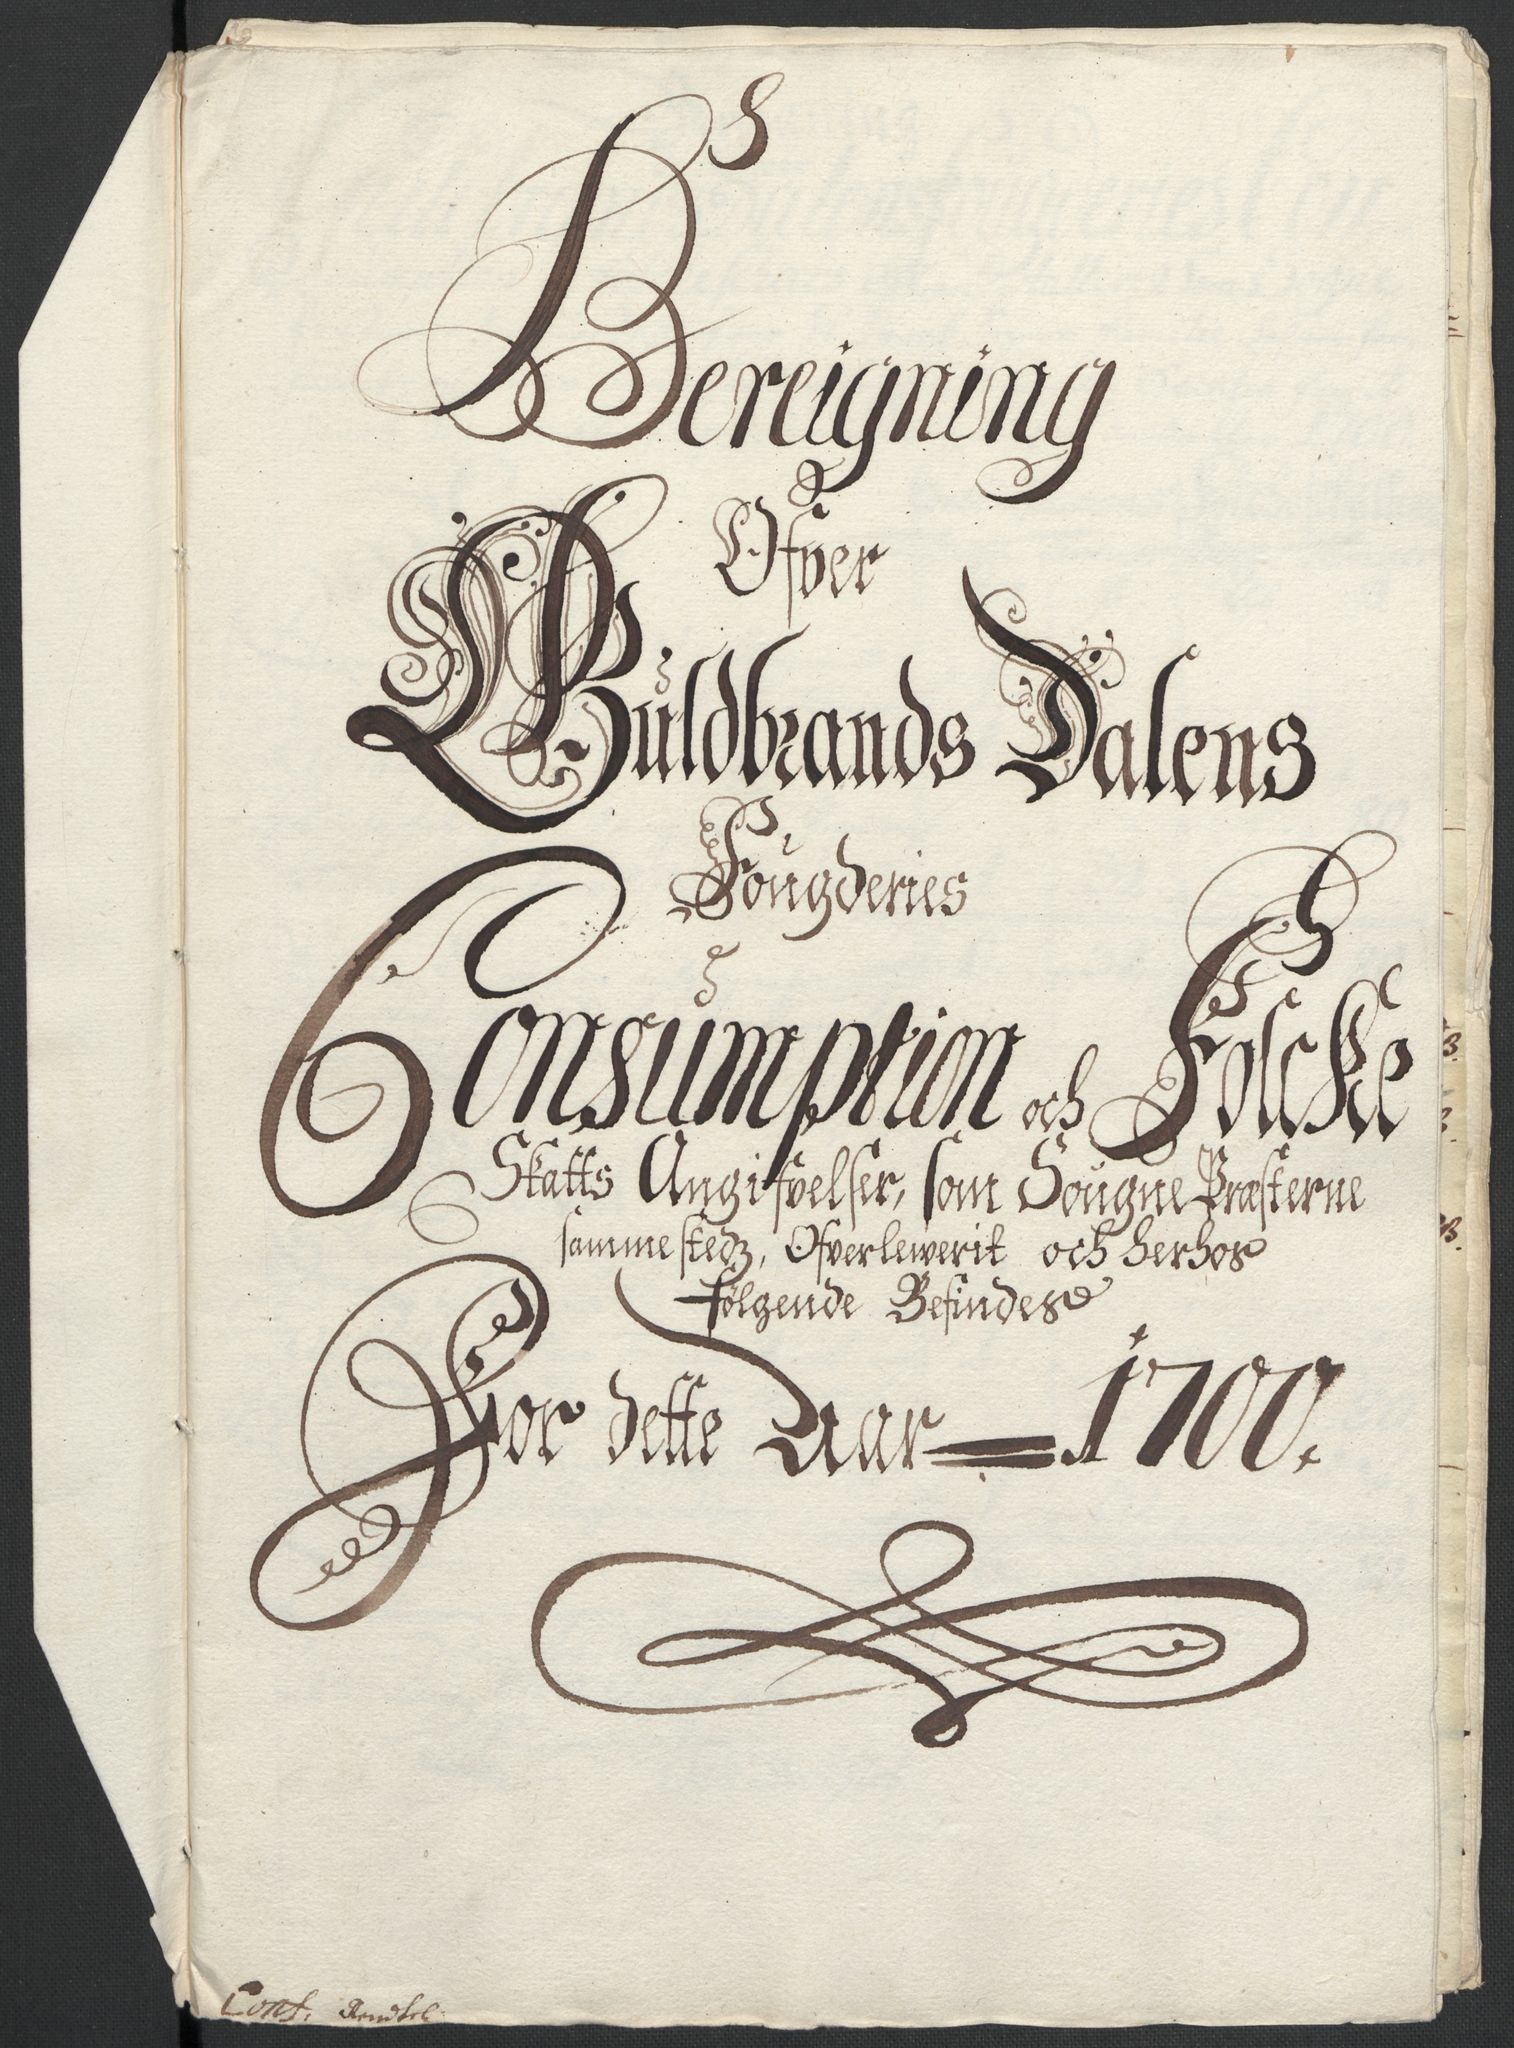 Bereigning
Ofver
Guldbrands Dalens
Fougderies
Consumption och Folcke
Skatts Angifvelser, som Sougne Præsterne
sammestedz, Ofverlewerit och herhos
følgende Befindes
For dette Aar 1700.